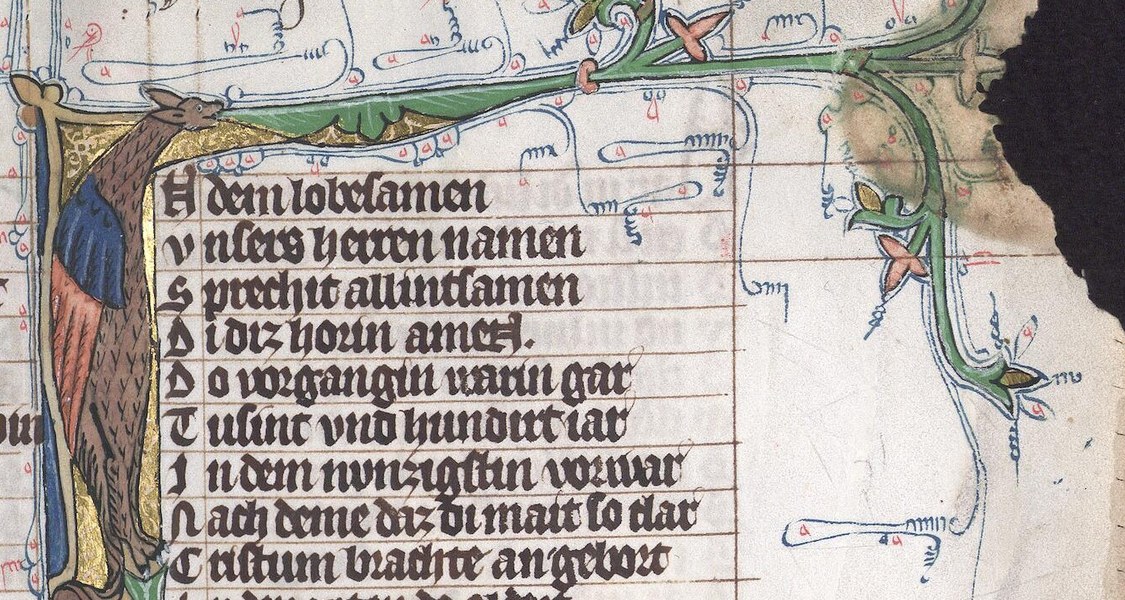 N dem lobesamen
v nsers herren namen
S prechit allintsamen
D i diz horin ameN.
D o vorgangin warin gar
T usint vnd hundirt iar
I n dem nvnzigstin vorwar
N ach deme daz di mait so clar
C ristum brachte an gebort